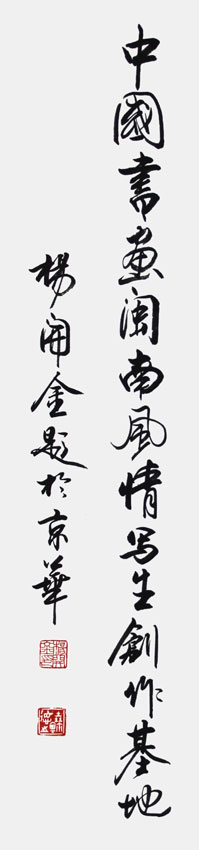 中國書畫闽南風情写生創作基地
楊開金題於京華